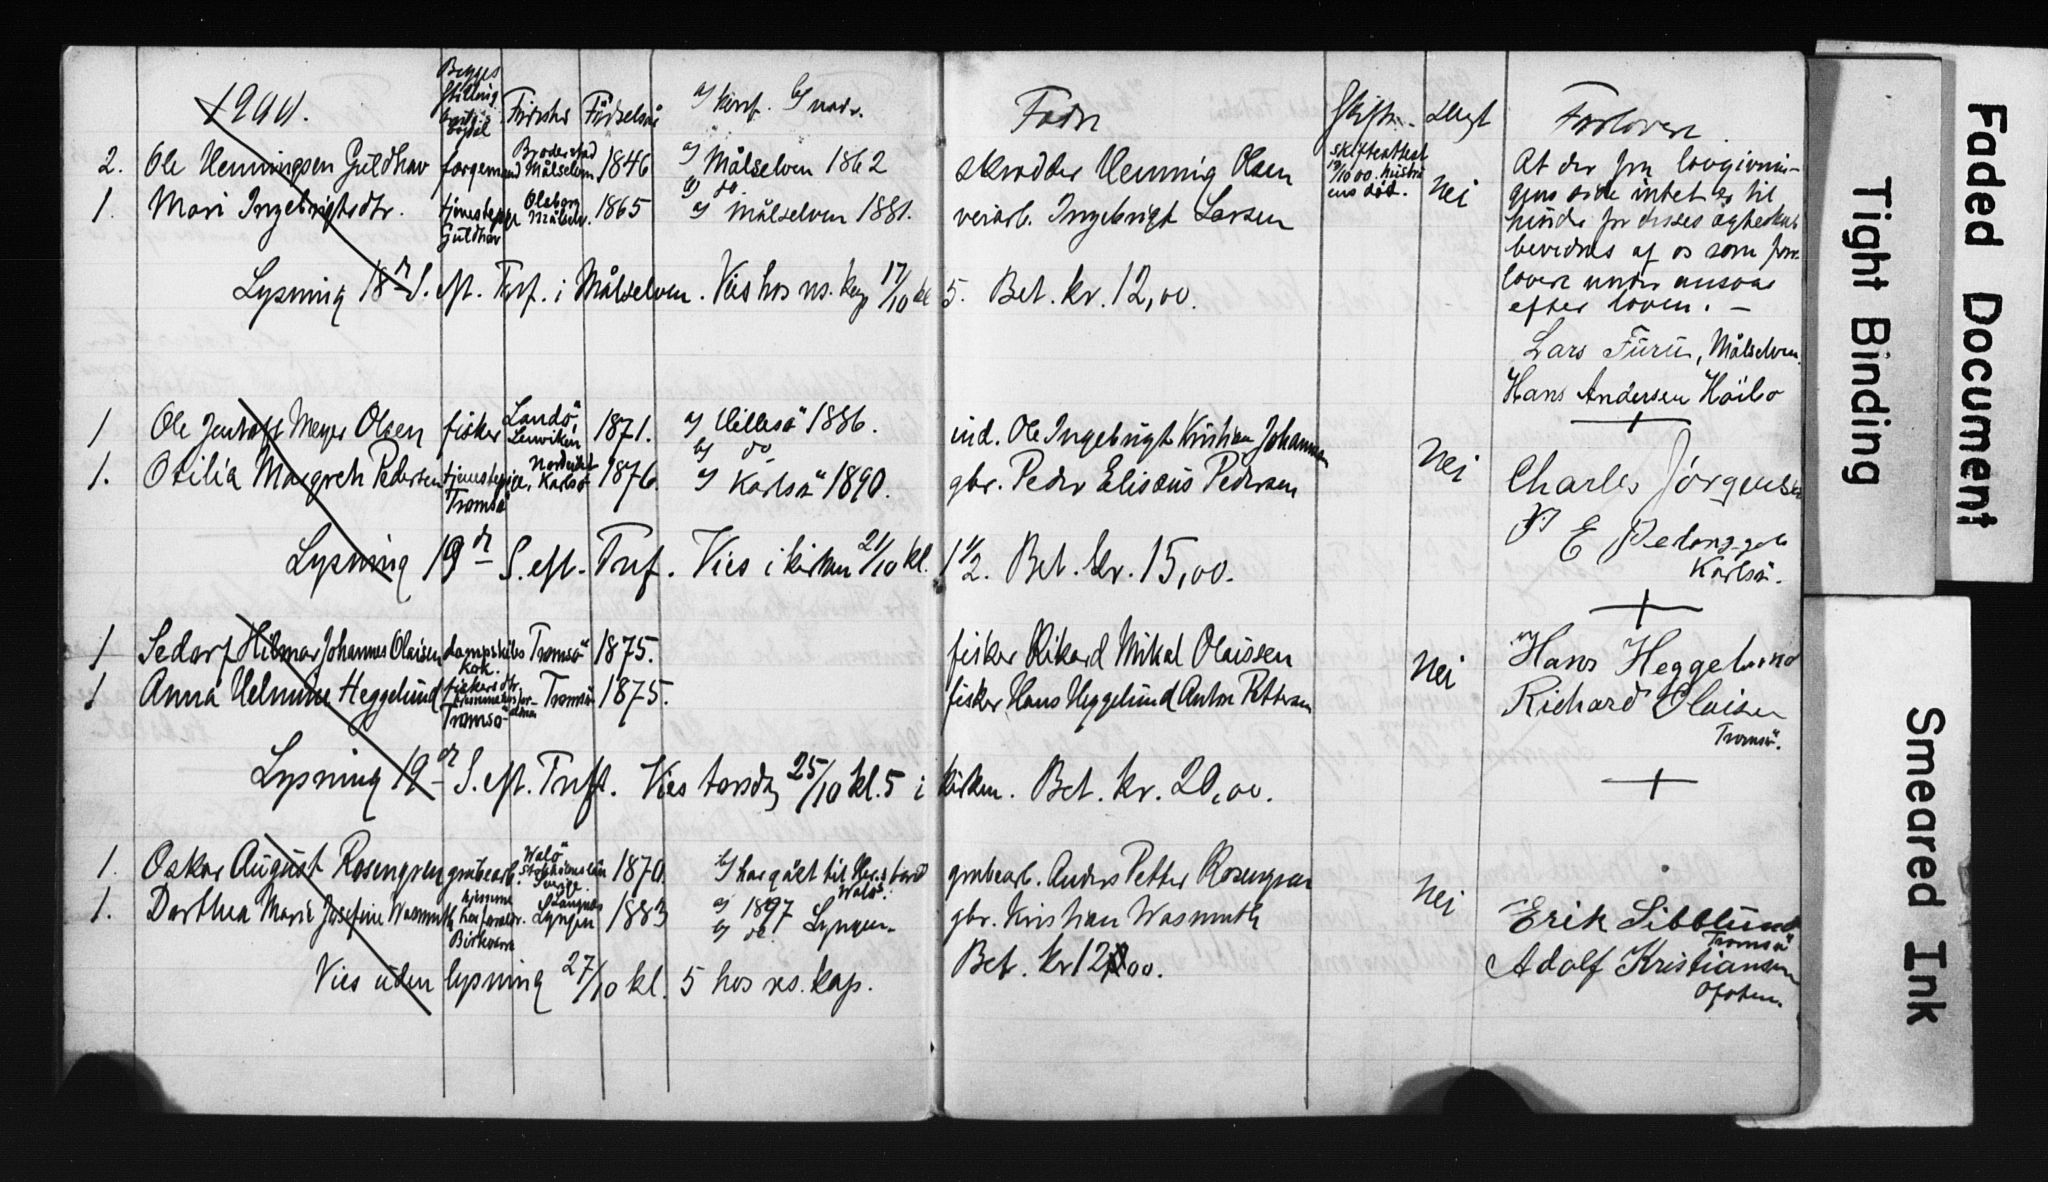 1900.
Begges Stilling bopæl
Födested
Fødselsår
a) konf. b) vacc.
Fader
Skifte
Slægt
Forlovere
2. Ole Henningsen Guldhav forgemand Målselven 1846 a) Målselven 1862 b) do skrædder Henning Olsen skifteattest 12/10 00. hustruens död. Nei
1. Mari Ingebrigtsdtr. tjenestepige Guldhav Olsborg Målselv. 1865 a) Målselven 1881. veiarb. Ingebrigt Larsen
At der fra lovgivnin-
gens side intet er til
hinder for disses ægteskab
bevidnes af os som for-
lovere under ansvar
efter loven. —
Lysning 18de S. eft. Tref. i Målselven. Vies hos res. kap 17/10 kl 5. Bet. kr. 12,00.
Lars Furu, Målselven.
Hans Andersen Höibo
1 Ole Jentoft Meyer Olsen fisker Landö, Lenviken 1871. a) Hillesö 1886. b) do ind. Ole Ingebrigt Kristian Johannesen Nei
1. Otilia Margreth Pedersen tjenestepige, Tromsö Karlsö 1876 a) Karlsö 1890. gbr. Peder Elisæus Pedersen
Charles Jörgensen
P E Pedersen gb
Karlsö.
Lysning 19de S. eft. Tref. Vies i kirken 21/10 kl. 1 1/2. Bet. kr. 15,00.
1 Sedorf Hilmar Johannes Olaisen dampskibs kok. Tromsö 1875. fisker Rikard Mikal Olaissen Nei
1 Anna Helmine Heggelund fiskerdtr. hjemme hos for- ældrene Tromsö Tromsö 1875. fisker Hans Heggelund Anton Pettersen
Hans Heggelund
Richard Olaisen
Tromsö.
Lysning 19de S. eft. Treft. Vies torsdag 25/10 kl. 5 i kirken. Bet. kr. 20,00.
1. Oskar August Rosengren grubearb. Walö Stockholms län Sverge. 1870. b) har gået til Herrens bord Walö. grubearb. Anders Petter Rosengren Nei
1. Dorthea Marie Josefine Wasmuth hjemme hos forældr. Lyngen 1883 a) 1897 Lyngen. b) do. gbr. Kristian Wasmuth
Erik Sibblund
Tromsö
Vies uden lysning 27/10 kl. 5 hos res. kap. Bet. kr 12,00.
Adolf Kristiansen
Ofoten.
Faded Document
Tight Binding
Smeared Ink